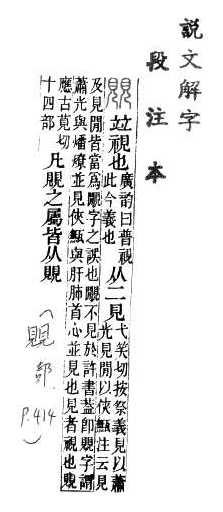 說文解字
段注本
覞 竝視也 廣韵曰普視
此今義也 从二見 弋笑切按祭義見以蕭
光見閒以俠甒注云見
及見閒皆當爲覸字之誤也覸不見於許書葢卽覞字謂
蕭光與燔燎並見俠甒與肝肺首心並見也見者視也覞
應古莧切
十四部 凡覞之屬皆从覞
(覞部 P.414)